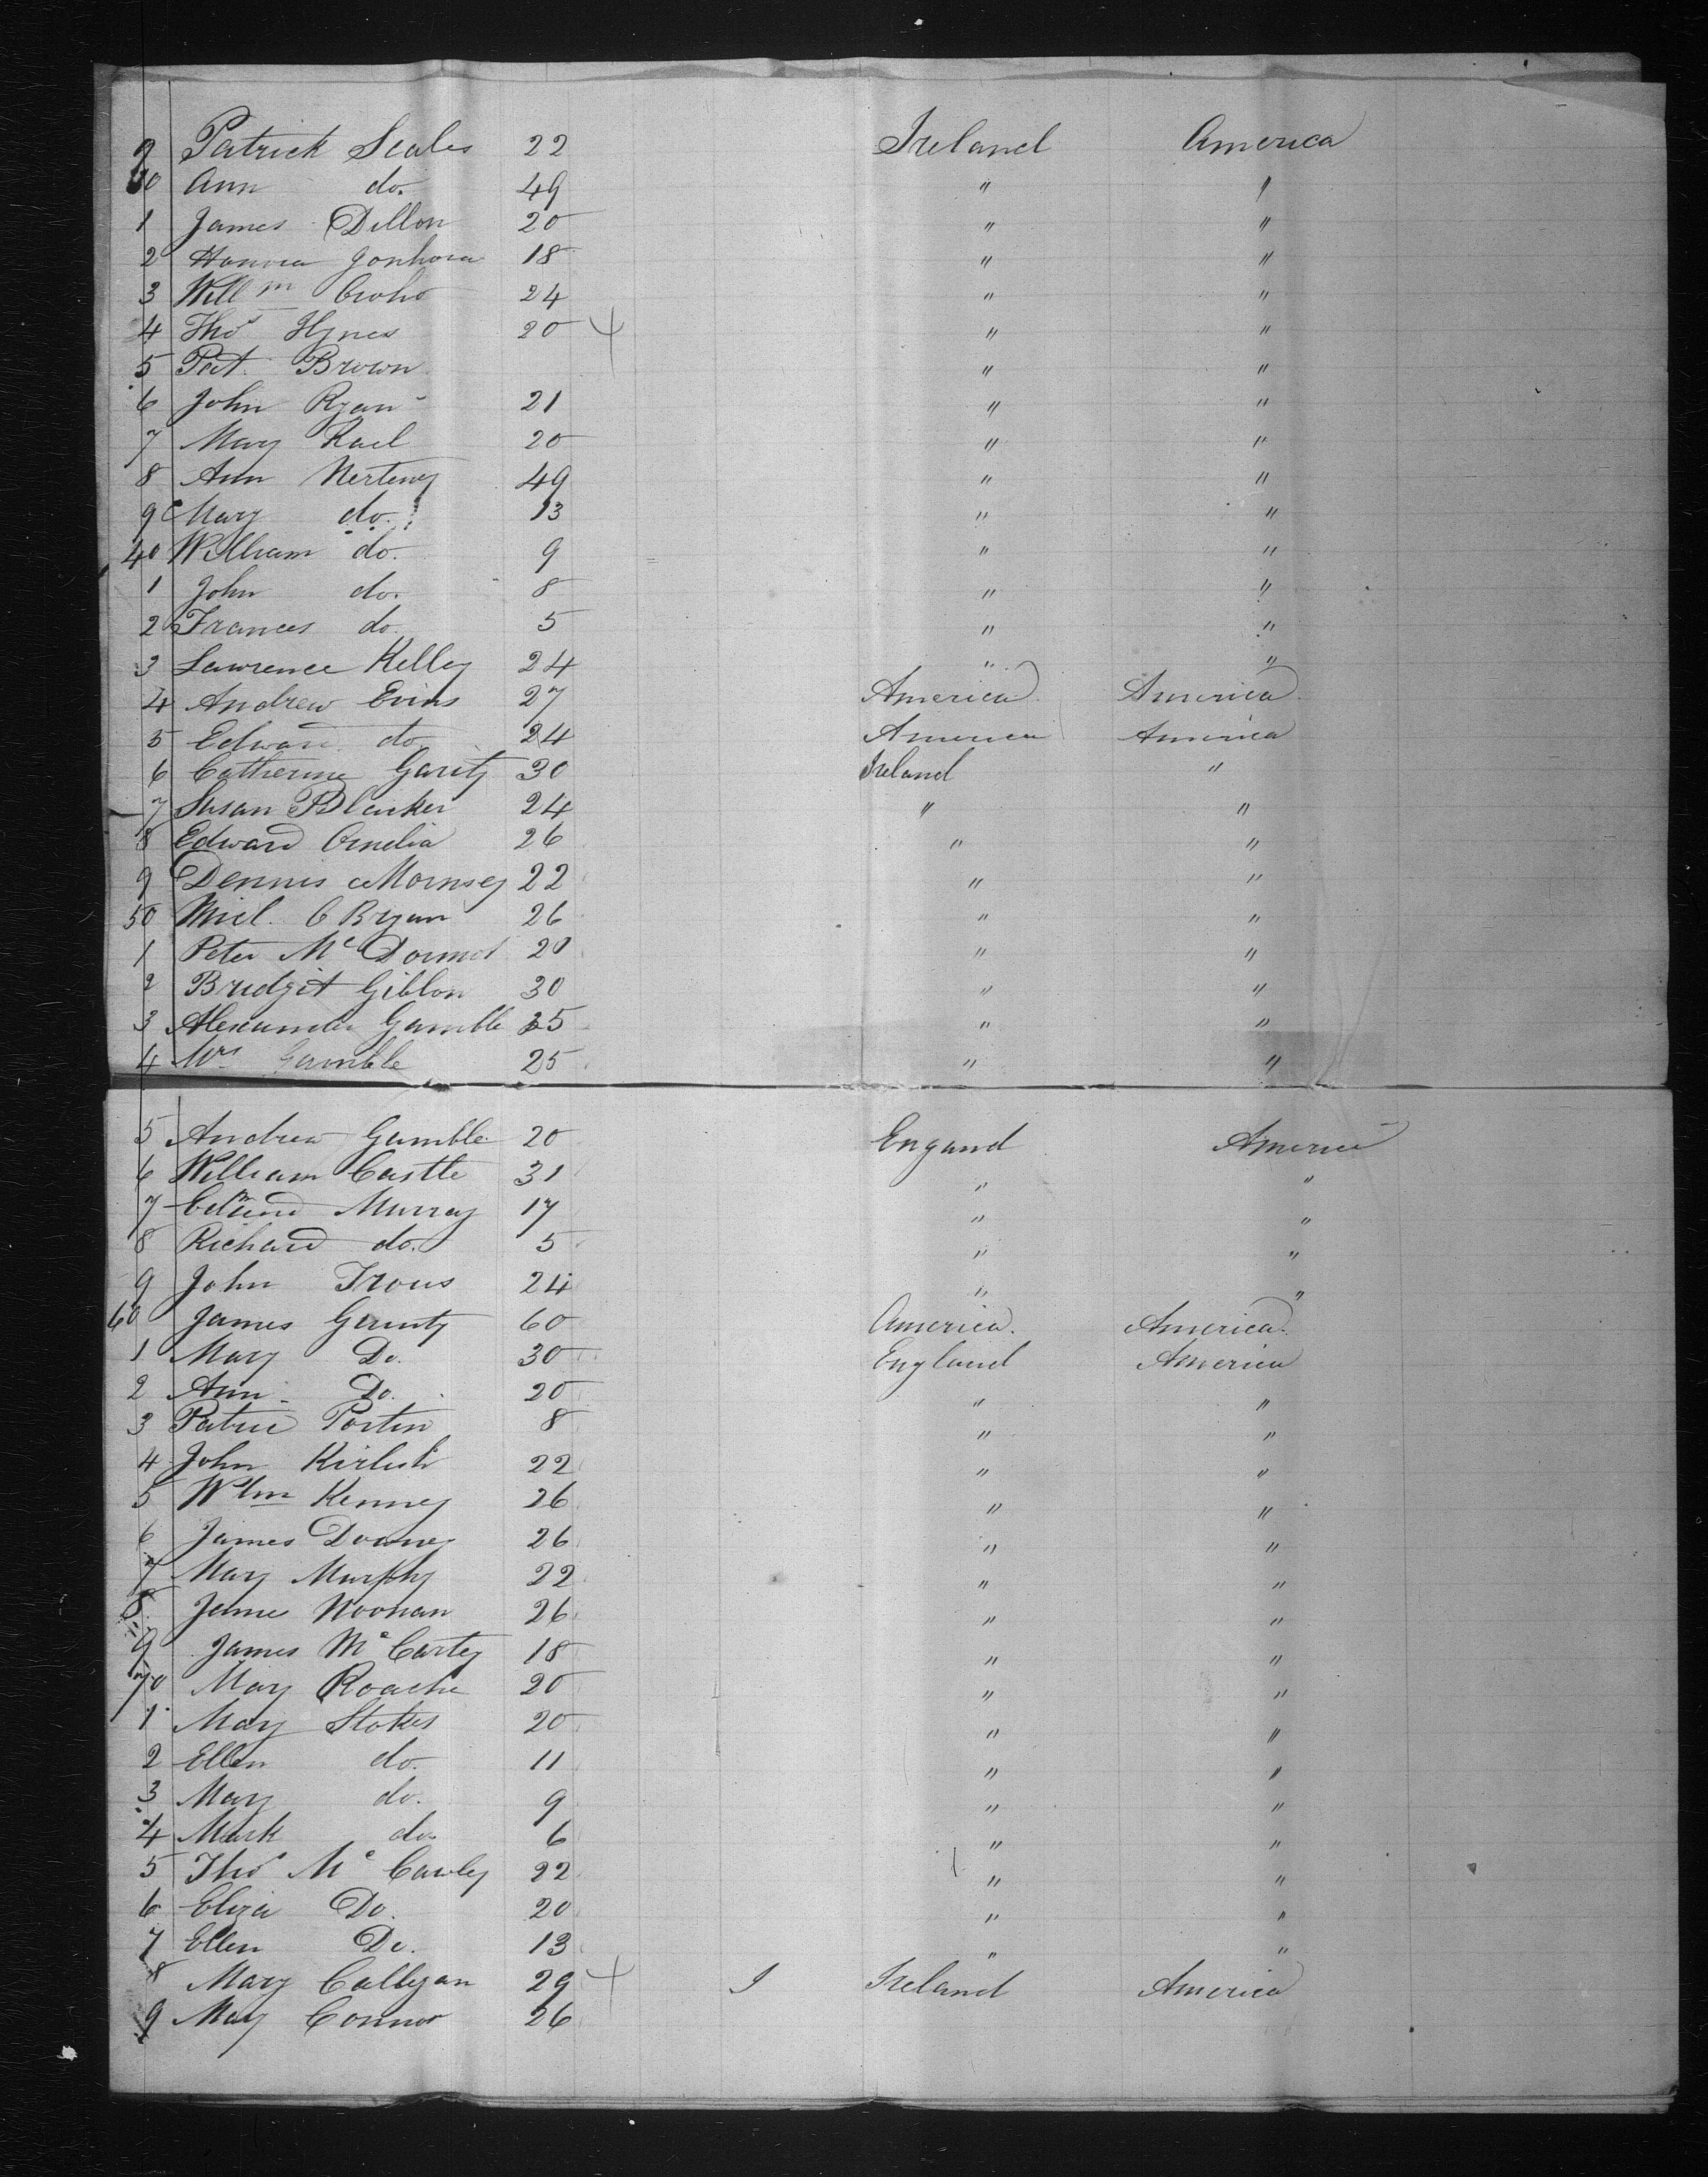 9 Patrick Scales 22 Ireland America
30 Ann do. 49 " "
1 James Dillon 20 " "
2 Honora 18 " "
3 Willm Croho 24 " "
4 Thos Hynes 20 " "
5 Pat. Brown " "
6 John Ryan 21 " "
7 Mary Kael 20 " "
8 Ann Nerteney 49 " "
9 Mary do. 13 " "
40 William do. 9 " "
1 John do. 8 " "
2 Frances do. 5 " "
3 Lawrence Kelley 24 " "
4 Andrew Evins 27 America America
5 Edward do 24 America America
6 Catherine Garity 30 Ireland "
7 Susan Blacker 24 " "
8 Edward 26 " "
9 Dennis Mornsey 22 " "
50 Micl. O Bryan 26 " "
1 Peter Mc Dormot 20 " "
2 Bridgit Giblon 30 " "
3 Alexander Gamble 35 " "
4 Mrs Gamble 25 " "
5 Andrew Gamble 20 Engand America
6 William Castle 31 " "
7 Edmund Murray 17 " "
8 Richard do. 5 " "
9 John Trous 24 " "
60 James Geruty 60 America. America.
1 Mary Do. 30 England America
2 Ann Do. 20 " "
3 Patric Portin 8 " "
4 John Kirlish 22 " "
5 Wlm Kenney 26 " "
6 James Downey 26 " "
7 Mary Murphy 22 " "
8 Jame Noonan 26 " "
9 James Mc Cartey 18 " "
70 Mary Roache 20 " "
1 Mary Stokes 20 " "
2 Ellen do. 11 " "
3 Mary do. 9 " "
4 Mark do. 6 " "
5 Thos Mc Cawley 22 " "
6 Eliza Do. 20 " "
7 Ellen Do. 13 " "
8 Mary Callgan 29 Ireland America
9 Mary Connor 26